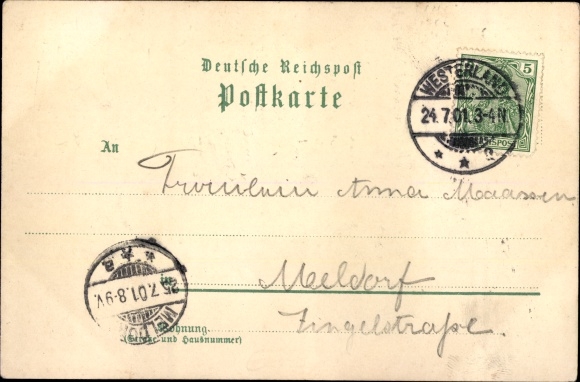 Deutsche Reichspost
Postkarte
5
WESTERLAND
24.7.01.3-4N.
An
Fräulein Anna Maassen
in Meldorf
25.7.01.8-9V.
MELDO
Zingelstraße
Wohnung.
(Straße und Hausnummer)